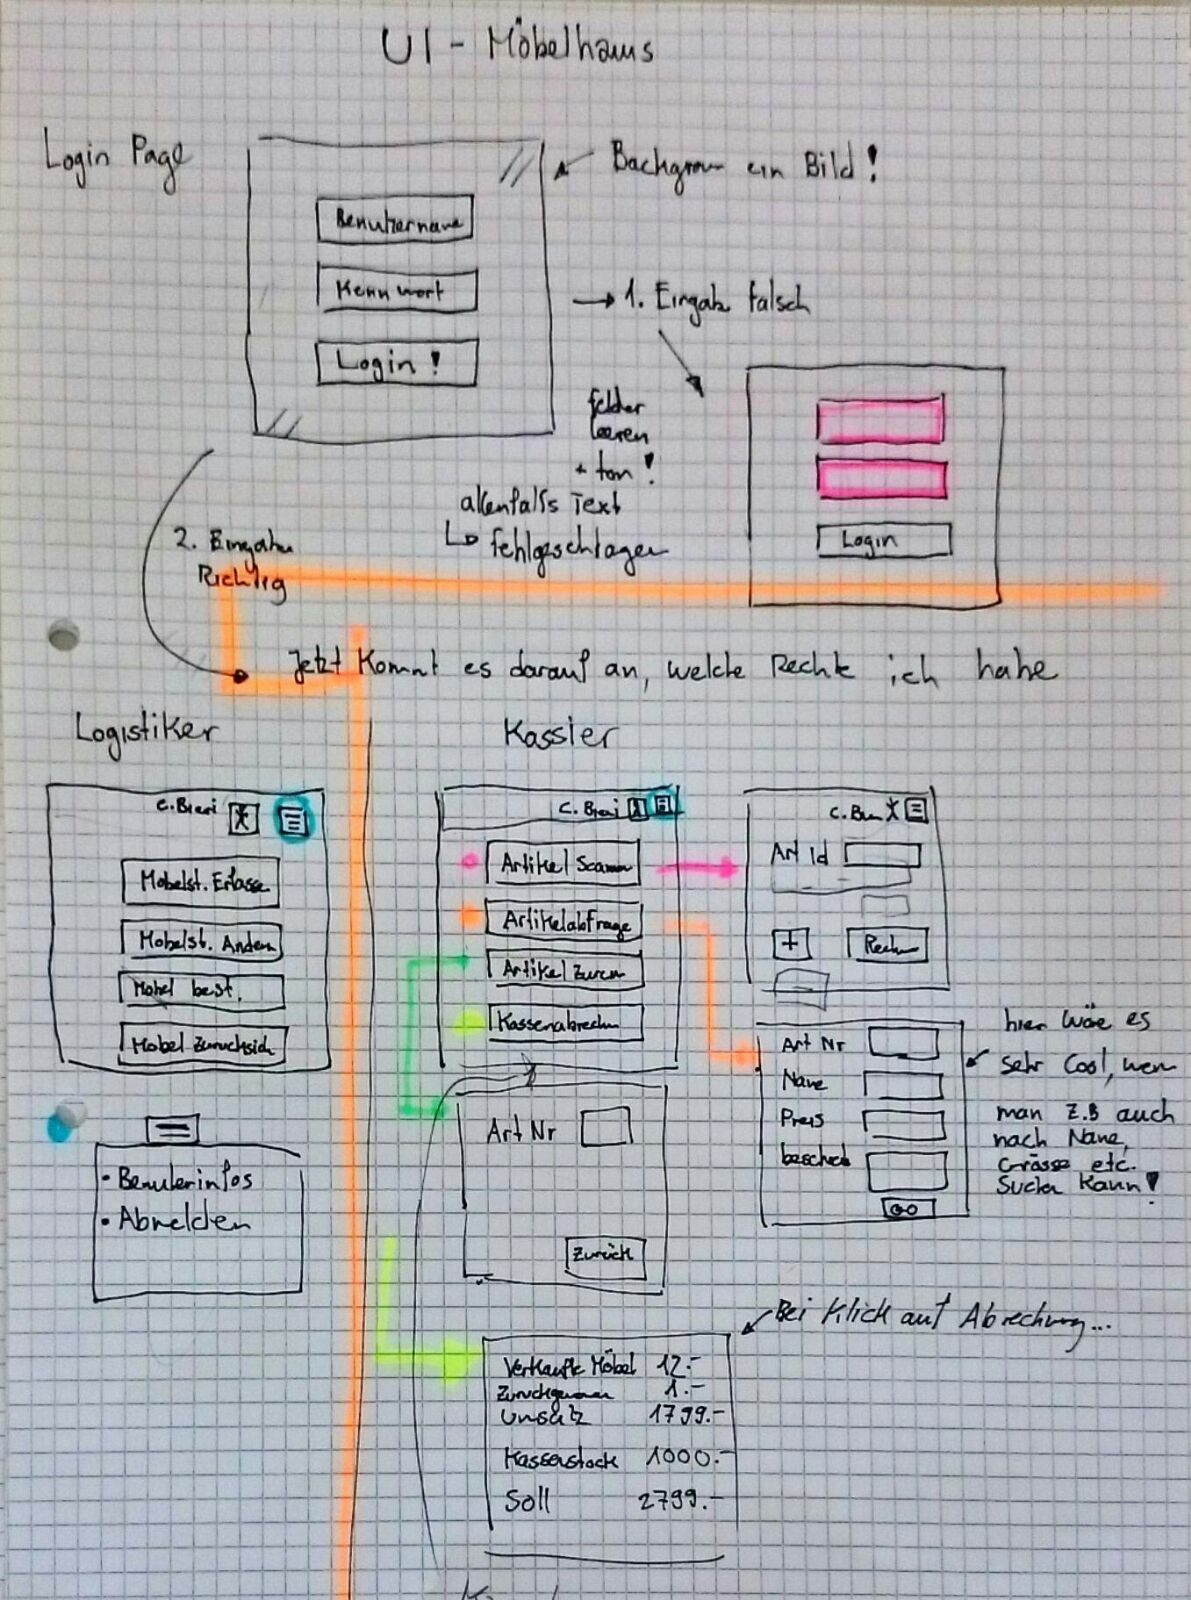 UI - Möbelhaus
Login Page
Bachgrou ein Bild!
Benutzername
Kennwort
Login!
→ 1. Eingabe falsch
felder
leeren
+ ton!
allenfalls Text
↳ fehlgeschlagen
Login
2. Eingabe
Richtig
Jetzt Kommt es darauf an, welche Rechte ich habe
Logistiker
Kassier
C. Bieri
Möbelst. Erfasse
Möbelst. Ändern
Möbel best.
Möbel Zurücksich
• Benuterinfos
• Abmelden
C. Bieri
Artikel Scann
Artikelabfrage
Artikel Zuren
Kassenabrechn
C. Bieri
Art Id
+
Rechn
Art Nr
Name
Preis
beschreib
hier wäe es
sehr Cool, wen
man Z.B auch
nach Name,
Grösse etc.
Suchen Kann!
Art Nr
Zurück
Bei Klick auf Abrechung...
Verkaufte Möbel 12.-
Zurückgenommen 1.-
Umsatz 1799.-
Kassenstock 1000.-
Soll 2799.-